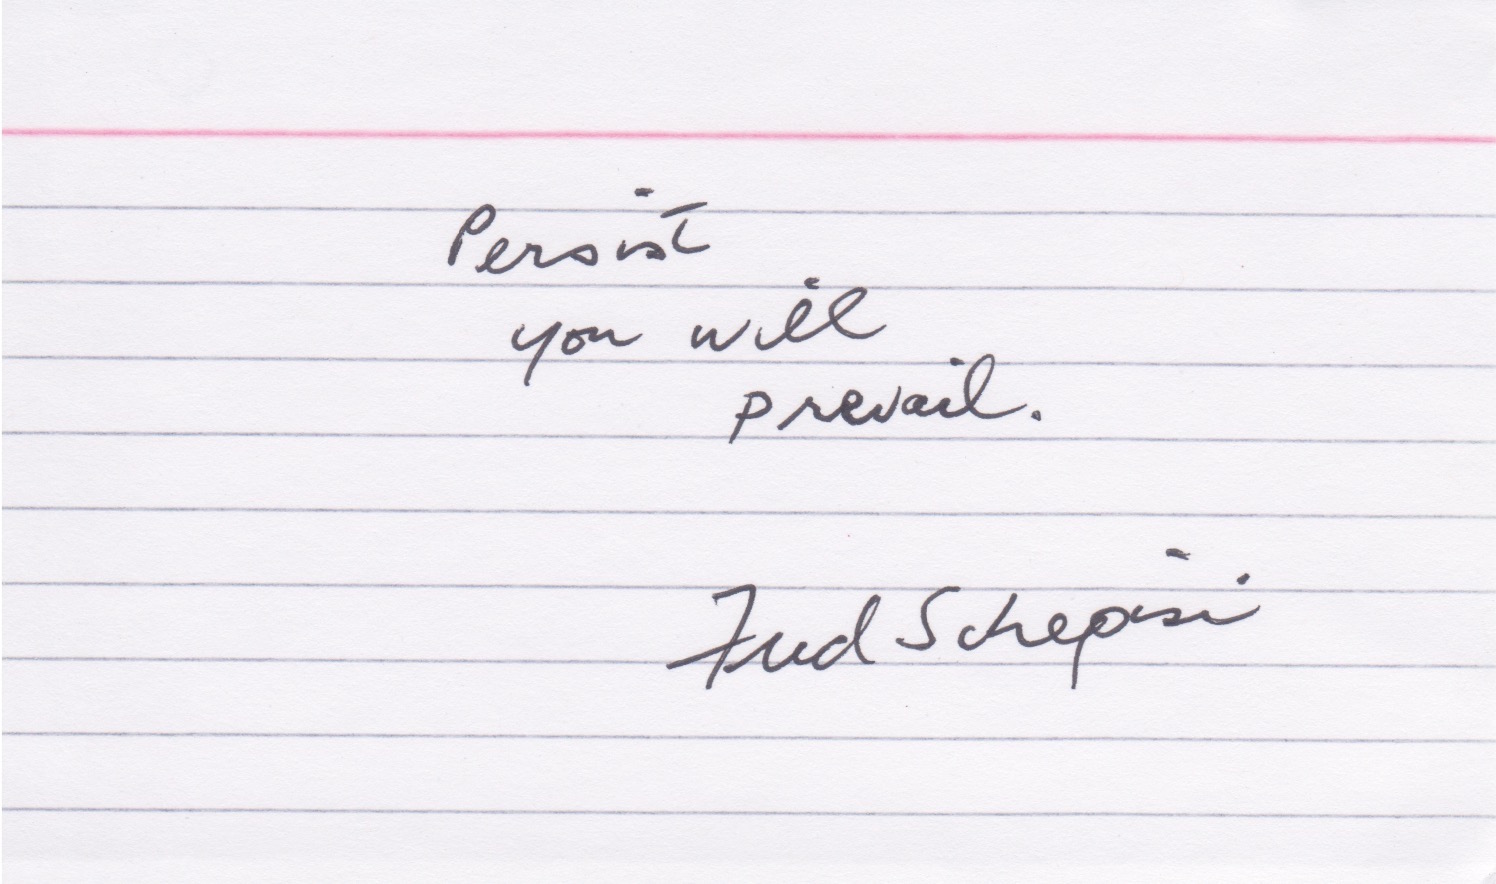 Persist
you will
prevail.
Fred Schepisi